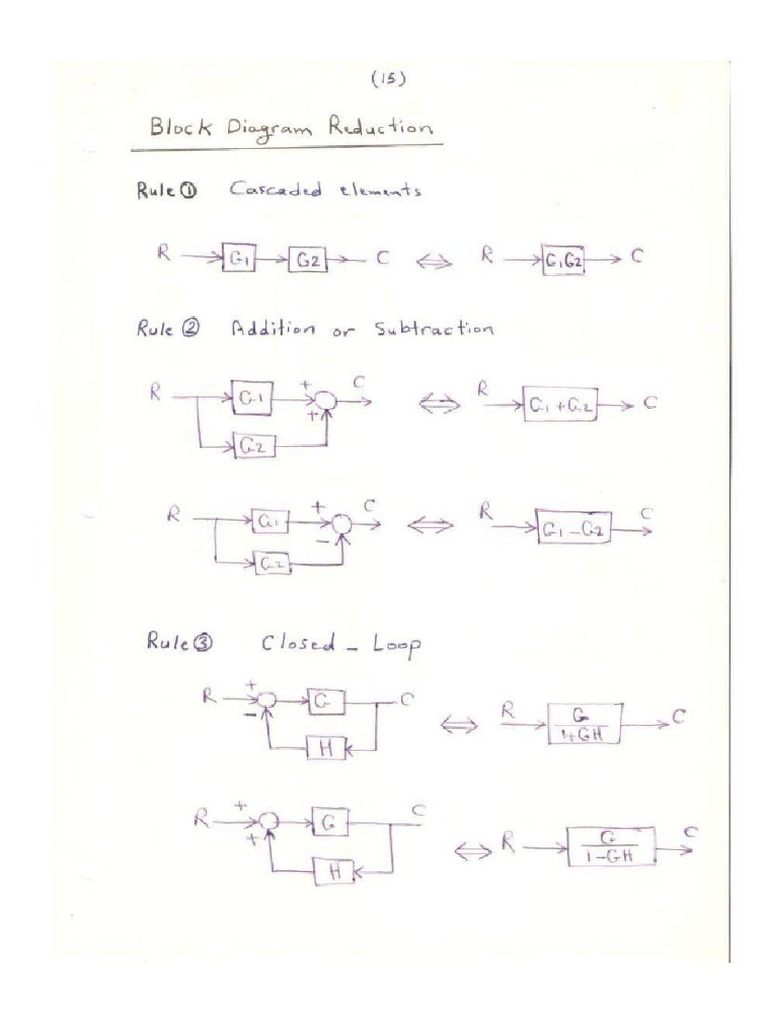 (15)
Block Diagram Reduction
Rule ① Cascaded elements
R G1 G2 C ⇔ R G1G2 C
Rule ② Addition or Subtraction
R G1 + C ⇔ R G1+G2 C
+
G2
R G1 + C ⇔ R G1-G2 C
-
G2
Rule ③ Closed - Loop
R + G C ⇔ R G/1+GH C
-
H
R + G C ⇔ R G/1-GH C
+
H